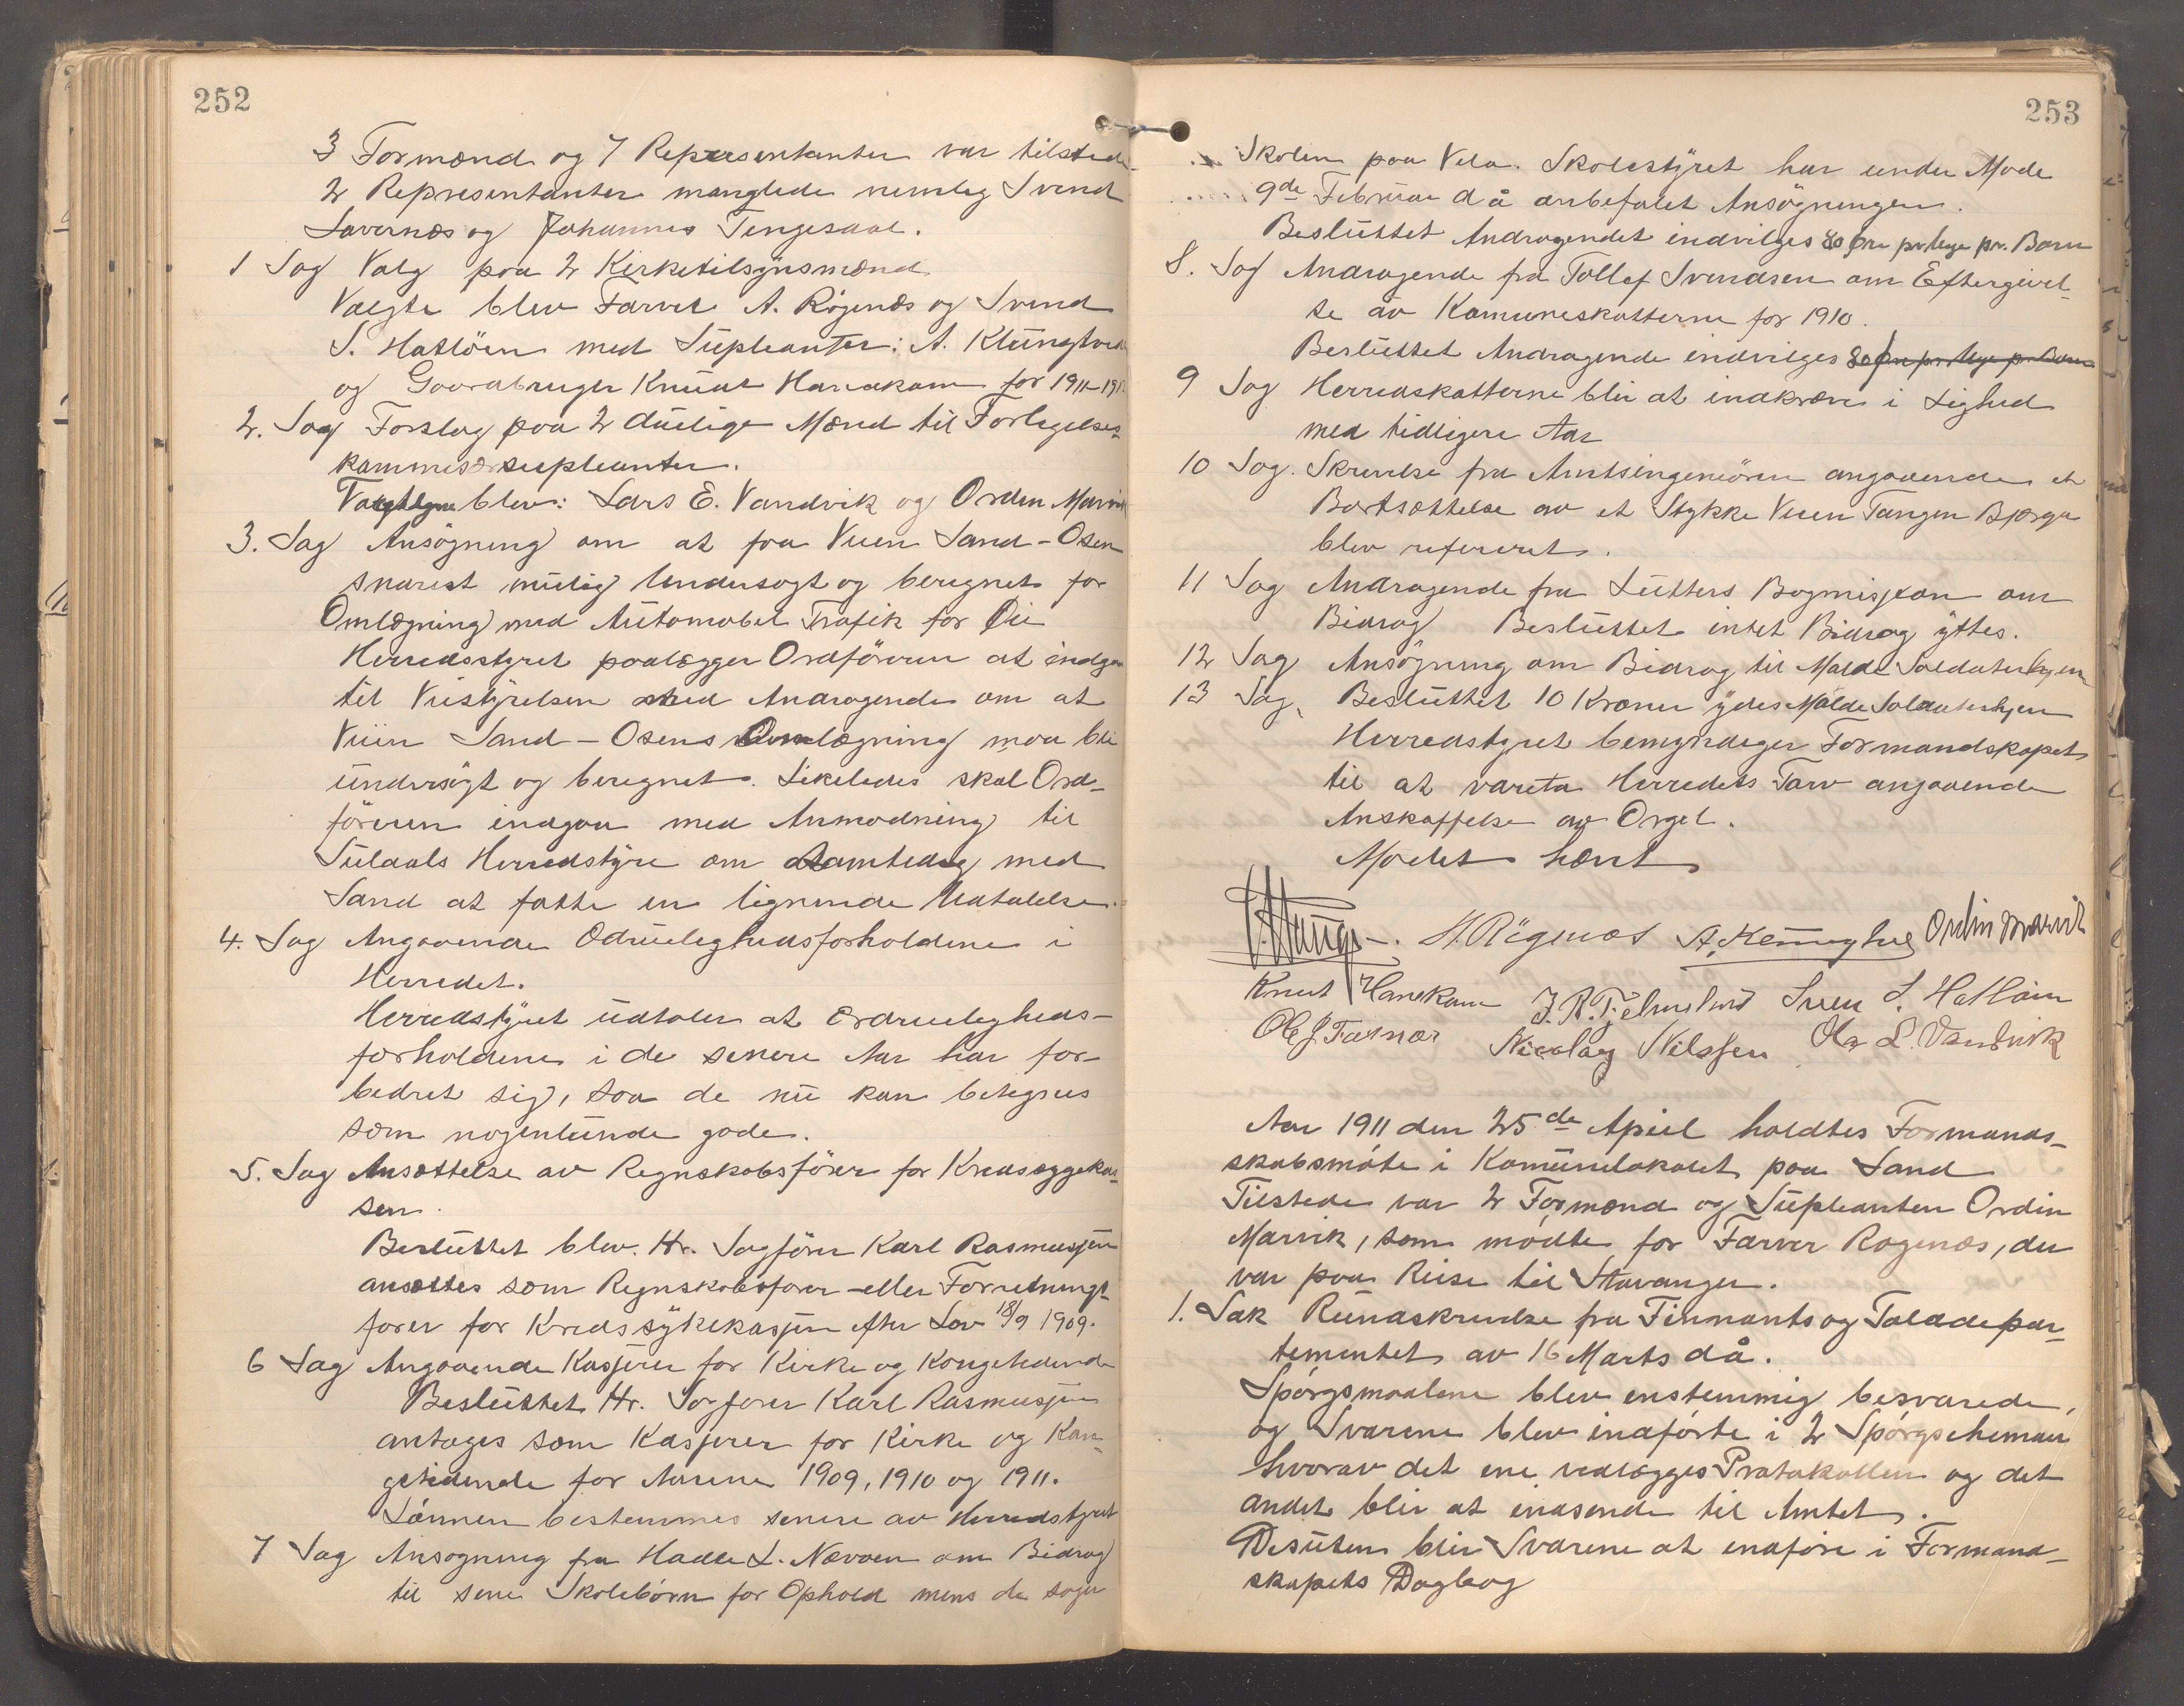 252
3 Formænd og 7 Repræsentanter var tilstede
2 Representanter manglede nemleg Svend
Lavernæs og Johannes Tengesaal.
1 Sag Valg paa 2 Kirketilsynsmænd
Valgte blev Farver A. Røgenæs og Svend
S. Hatlöen med Supleanter: A. Klungtvedt
og Gaardbruger Knudt Hanakam for 1911-191
2. Sag Forslag paa 2 duelige Mænd til Forlegelses-
kommisærsupleanter.
Valgte blev: Lars E. Vandvik og Orden Marvik
3. Sag Ansögning om at faa Veien Sand-Osen
snarest mulig Undersøgt og beregnet for
Omlægning med Automobel Trafik for Öie
Herredsstyret paalægger Ordföreren at indgaa
til Veistyrelsen med Andragende om at
Veien Sand-Osens Omlægning maa bli
undersögt og beregnet. Likeledes skal Ord-
föreren indgaa med Anmodning til
Suldals Herredstyre om samtedeg med
Sand at fatte en lignende Uttalelse.
4. Sag Angaaende Ædrueleghedsforholdene i
Herredet.
Herredstyret udtaler at Ædrueligheds-
forholdene i de senere Aar har for-
bedret sig, saa de nu kan betegnes
som nogenlunde gode.
5. Sag Ansættelse av Regnskabsförer for Kredssygekas-
sen.
Besluttet blev. Hr. Sagförer Karl Rasmussen
ansættes som Regnskabsfører eller Forretnings-
fører for Kredssykekassen efter Lov 18/9 1909.
6 Sag Angaaende Kasserer for Kirke og Kongetiende
Besluttet Hr. Sagfører Karl Rasmussen
antages som Kasserer for Kirke og Kon-
getiende for Aarene 1909, 1910 og 1911.
Lønnen bestemmes senere av Herredstyret
7 Sag Ansøgning fra Hadle L. Nævøen om Bidrag
til sene Skolebörn for Ophold mens de søger
253
Skolen paa Vela. Skolestyret har under Møde
9de Februar d å anbefalet Ansögningen.
Besluttet Andragendet indvilges 80 Øre pr Uge pr. Barn
8. Sag Andragende fra Tollef Svendsen om Eftergivel-
se av Komuneskatterne for 1910.
Besluttet Andragende indvilges 80 Øre pr Uge pr. Barn
9 Sag Herredskatterne blir at indkræve i Lighed
med tidligere Aar
10 Sag. Skrivelse fra Amtsingeniören angaaende et
Bortsættelse av et Stykke Veien Tangen Bjerga
blev referert.
11 Sag Andragende fra Luthers Bogmisjon om
Bidrag Besluttet intet Bidrag yttes.
12 Sag Ansögning om Bidrag til Malde Soldaterhjem
13 Sag. Besluttet 10 Kroner ydes Malde Soldaterhjem
Herredstyret bemyndeger Formandskapet
til at vareta Herredets Tarv angaaende
Anskaffelse av Orgel.
Mødet hævet
A. Rögenæs A. Klungtveit Ordin Marvik
Knut Hanakam J. R. Fjelmslud Sven S. Hatlöen
Ole J Foernæs Nicolay Nilssen Ola L. Vandvik
Aar 1911 den 25de April holdtes Formands-
skabsmøte i Komunelokalet paa Sand
Tilstede var 2 Formænd og Supleanten Ordin
Marvik, som mödte for Farver Røgenæs, der
var paa Reise til Stavanger.
1. Sak Rundskrivelse fra Finnants og Tolddepar-
tementet av 16 Marts då.
Spørgsmaalene blev enstemmig besvarede,
og Svarene blev indførte i 2 Spørgschemaer
hvorav det ene vedlægges Protokollen og det
andet blir at indsende til Amtet.
Desuten blir Svarene at indføre i Formand-
skapets Dagbog